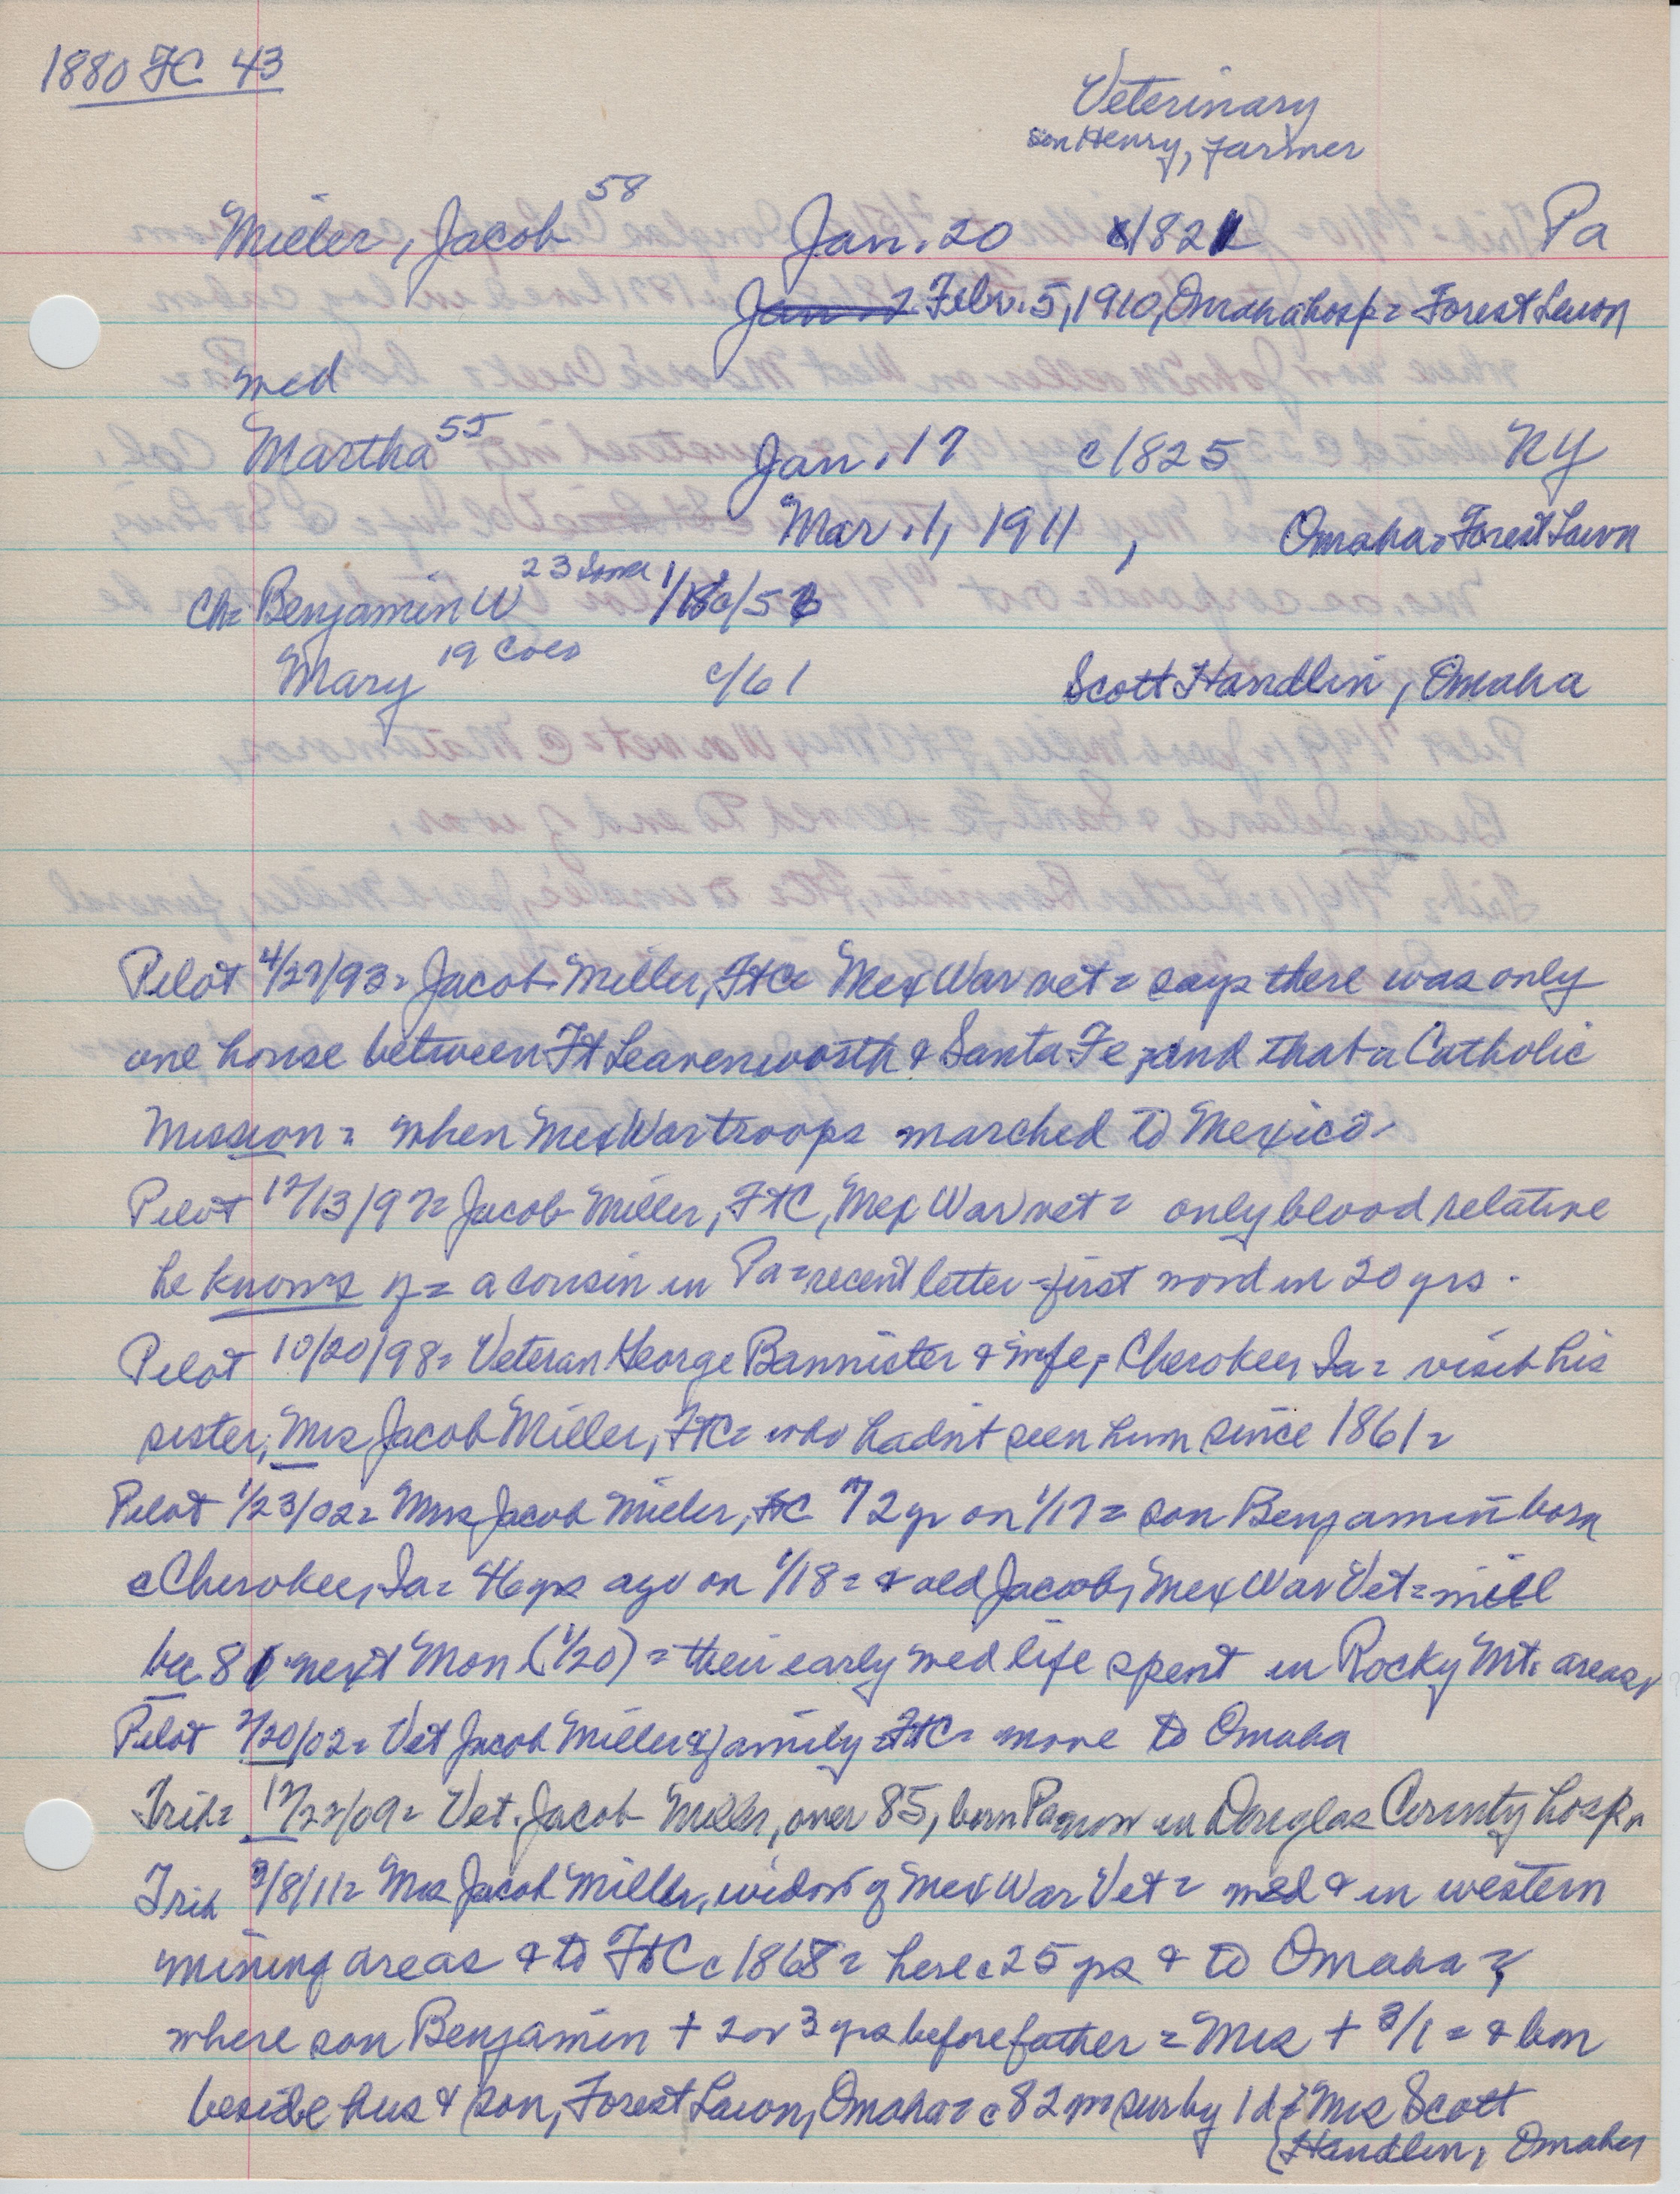 1880 FC 43
Veterinary
son Henry, farmer
Miller, Jacob 58 Jan. 20 1821 Pa
Jan 2 Febr. 5, 1910, Omaha hosp = Forest Lawn
med
Martha 55 Jan. 17 c/825 NY
Mar. 1, 1911, Omaha = Forest Lawn
Ch= Benjamin W 23 Iowa 1/18/56
Mary 19 Colo c/61 Scott Handlin, Omaha
Pilot 4/27/93 = Jacob Miller, FtC = Mex War vet = says there was only
one house between Ft Leavenworth & Santa Fe, and that a Catholic
Mission = when Mex War troops marched to Mexico-
Pilot 12/13/97 = Jacob Miller, FtC, Mex War vet = only blood relative
he knows of = a cousin in Pa = recent letter = first word in 20 yrs.
Pilot 10/20/98 = Veteran George Bannister & wife, Cherokee, Ia = visit his
sister, Mrs Jacob Miller, FtC = who hadnt seen him since 1861 =
Pilot 1/23/02 = Mrs Jacob Miller, FtC 72 yr on 1/17 = son Benjamin born
@ Cherokee, Ia = 46 yrs ago on 1/18 = & old Jacob, Mex War Vet = will
be 81 next Mon (1/20) = their early med life spent in Rocky Mt. areas
Pilot 2/20/02 = Vet Jacob Miller & family = FtC = move to Omaha
Trib = 12/22/09 = Vet. Jacob Miller, over 85, born Pa = now in Douglas County hosp
Trib 3/8/11 = Mrs Jacob Miller, widow of Mex War Vet = med & in western
mining areas & to FtC c 1868 = here c 25 yrs & to Omaha =
where son Benjamin + 2 or 3 yrs before father = Mrs + 3/1 = & bur
beside hus & son, Forest Lawn, Omaha = c 82 yr = sur by 1 d = Mrs Scott
Handlin, Omaha